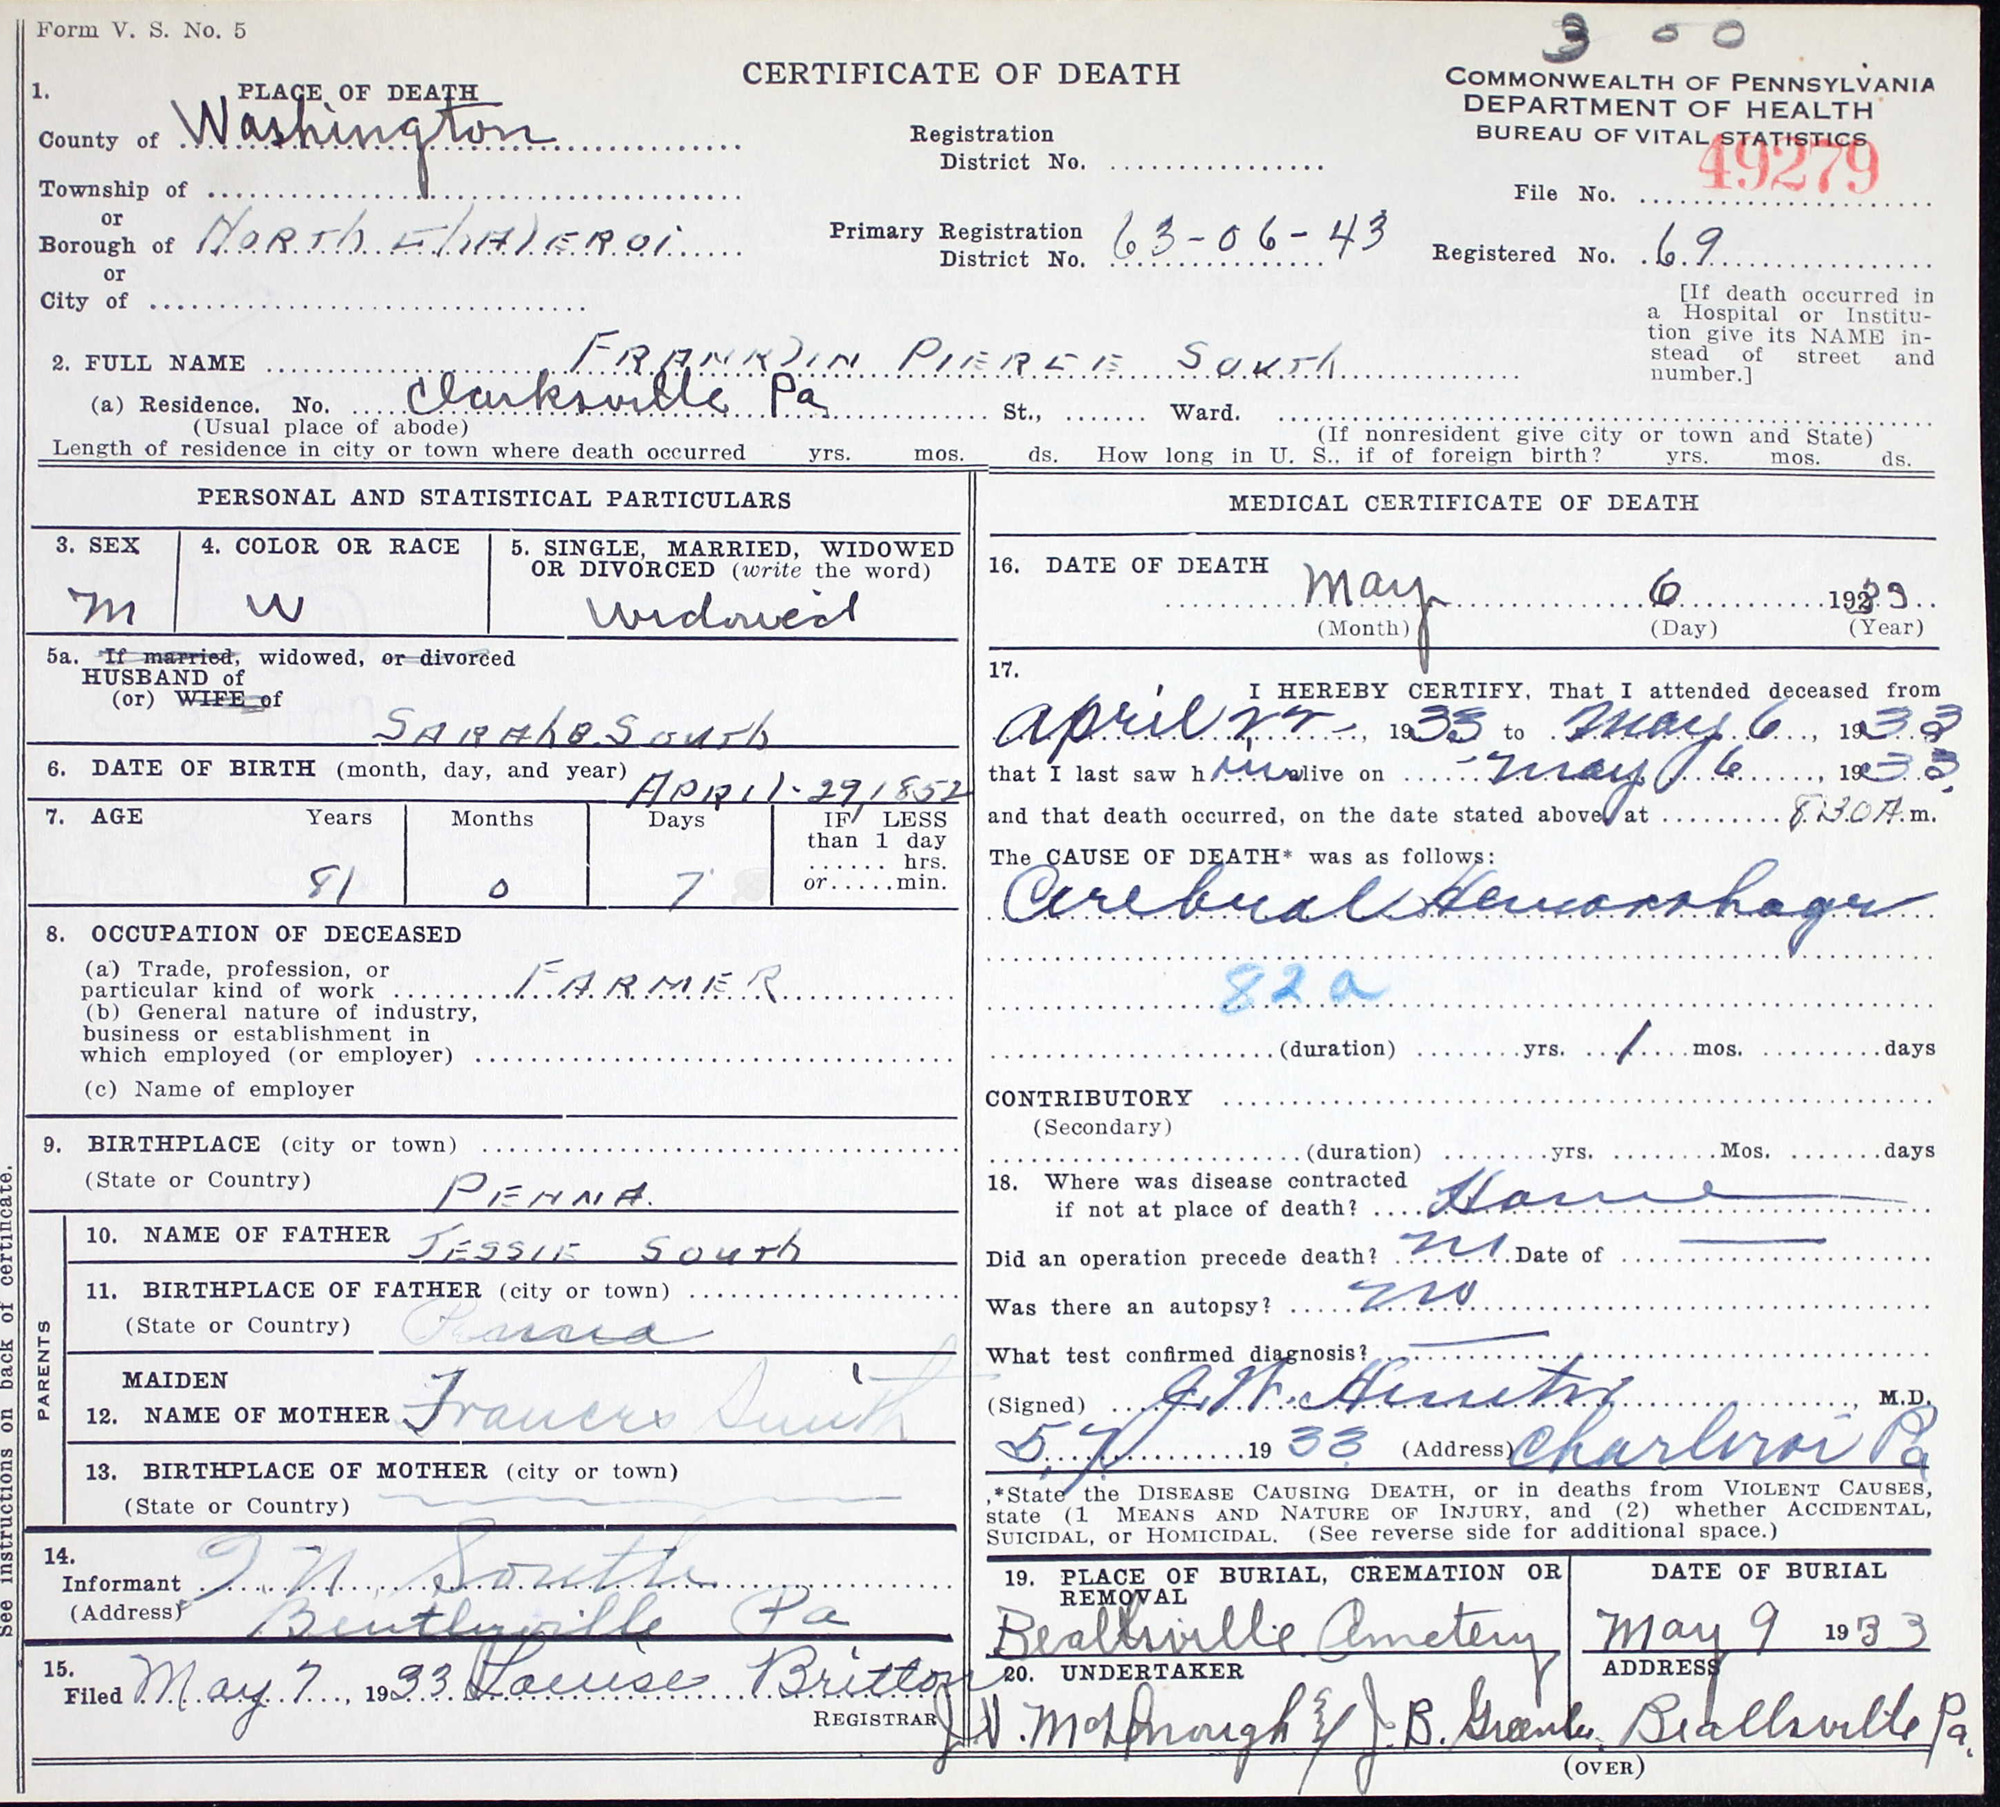 Form V. S. No. 5
3 0 0
CERTIFICATE OF DEATH
COMMONWEALTH OF PENNSYLVANIA
DEPARTMENT OF HEALTH
BUREAU OF VITAL STATISTICS
1. PLACE OF DEATH
County of Washington
Registration
District No.
49279
File No.
Township of
or
Borough of NORTH CHALEROI
Primary Registration
District No. 63-06-43
Registered No. 69
or
City of
[If death occurred in
a Hospital or Institu-
tion give its NAME in-
stead of street and
number.]
2. FULL NAME FRANKLIN PIERCE SOUTH
(a) Residence. No. Clarksville Pa St., Ward.
(Usual place of abode)
(If nonresident give city or town and State)
Length of residence in city or town where death occurred yrs. mos. ds. How long in U. S., if of foreign birth? yrs. mos. ds.
PERSONAL AND STATISTICAL PARTICULARS
3. SEX
M
4. COLOR OR RACE
W
5. SINGLE, MARRIED, WIDOWED
OR DIVORCED (write the word)
Widowed
5a. If married, widowed, or divorced
HUSBAND of
(or) WIFE of
SARAh B. South
6. DATE OF BIRTH (month, day, and year) APRIL-29,1852
7. AGE Years Months Days IF LESS
than 1 day
hrs.
or.....min.
81 0 7
8. OCCUPATION OF DECEASED
(a) Trade, profession, or
particular kind of work FARMER
(b) General nature of industry,
business or establishment in
which employed (or employer)
(c) Name of employer
9. BIRTHPLACE (city or town)
(State or Country) PENNA.
PARENTS
10. NAME OF FATHER JESSIE South
11. BIRTHPLACE OF FATHER (city or town)
(State or Country) Penna
MAIDEN
12. NAME OF MOTHER Frances Smith
13. BIRTHPLACE OF MOTHER (city or town)
(State or Country)
14.
Informant N. South
(Address) Bentleyville Pa
15.
Filed May 7, 1933 Louise Britton
REGISTRAR
See instructions on back of certificate.
MEDICAL CERTIFICATE OF DEATH
16. DATE OF DEATH
May 6 1933
(Month) (Day) (Year)
17.
I HEREBY CERTIFY, That I attended deceased from
April 22, 1933 to May 6, 1933
that I last saw him alive on May 6, 1933,
and that death occurred, on the date stated above, at 8:30 A.m.
The CAUSE OF DEATH* was as follows:
Cerebral Hemorrhage
82a
(duration) yrs. 1 mos. days
CONTRIBUTORY
(Secondary)
(duration) yrs. Mos. days
18. Where was disease contracted
if not at place of death? Home
Did an operation precede death? no Date of
Was there an autopsy? no
What test confirmed diagnosis?
(Signed) J. W. Hunter, M.D.
5.7. 1933 (Address) Charleroi Pa
*State the DISEASE CAUSING DEATH, or in deaths from VIOLENT CAUSES,
state (1 MEANS AND NATURE OF INJURY, and (2) whether ACCIDENTAL,
SUICIDAL, or HOMICIDAL. (See reverse side for additional space.)
19. PLACE OF BURIAL, CREMATION OR
REMOVAL
Beallsville Cemetery
DATE OF BURIAL
May 9 1933
20. UNDERTAKER
ADDRESS
J. V. McDonough & J. B. Beallsville Pa.
(OVER)